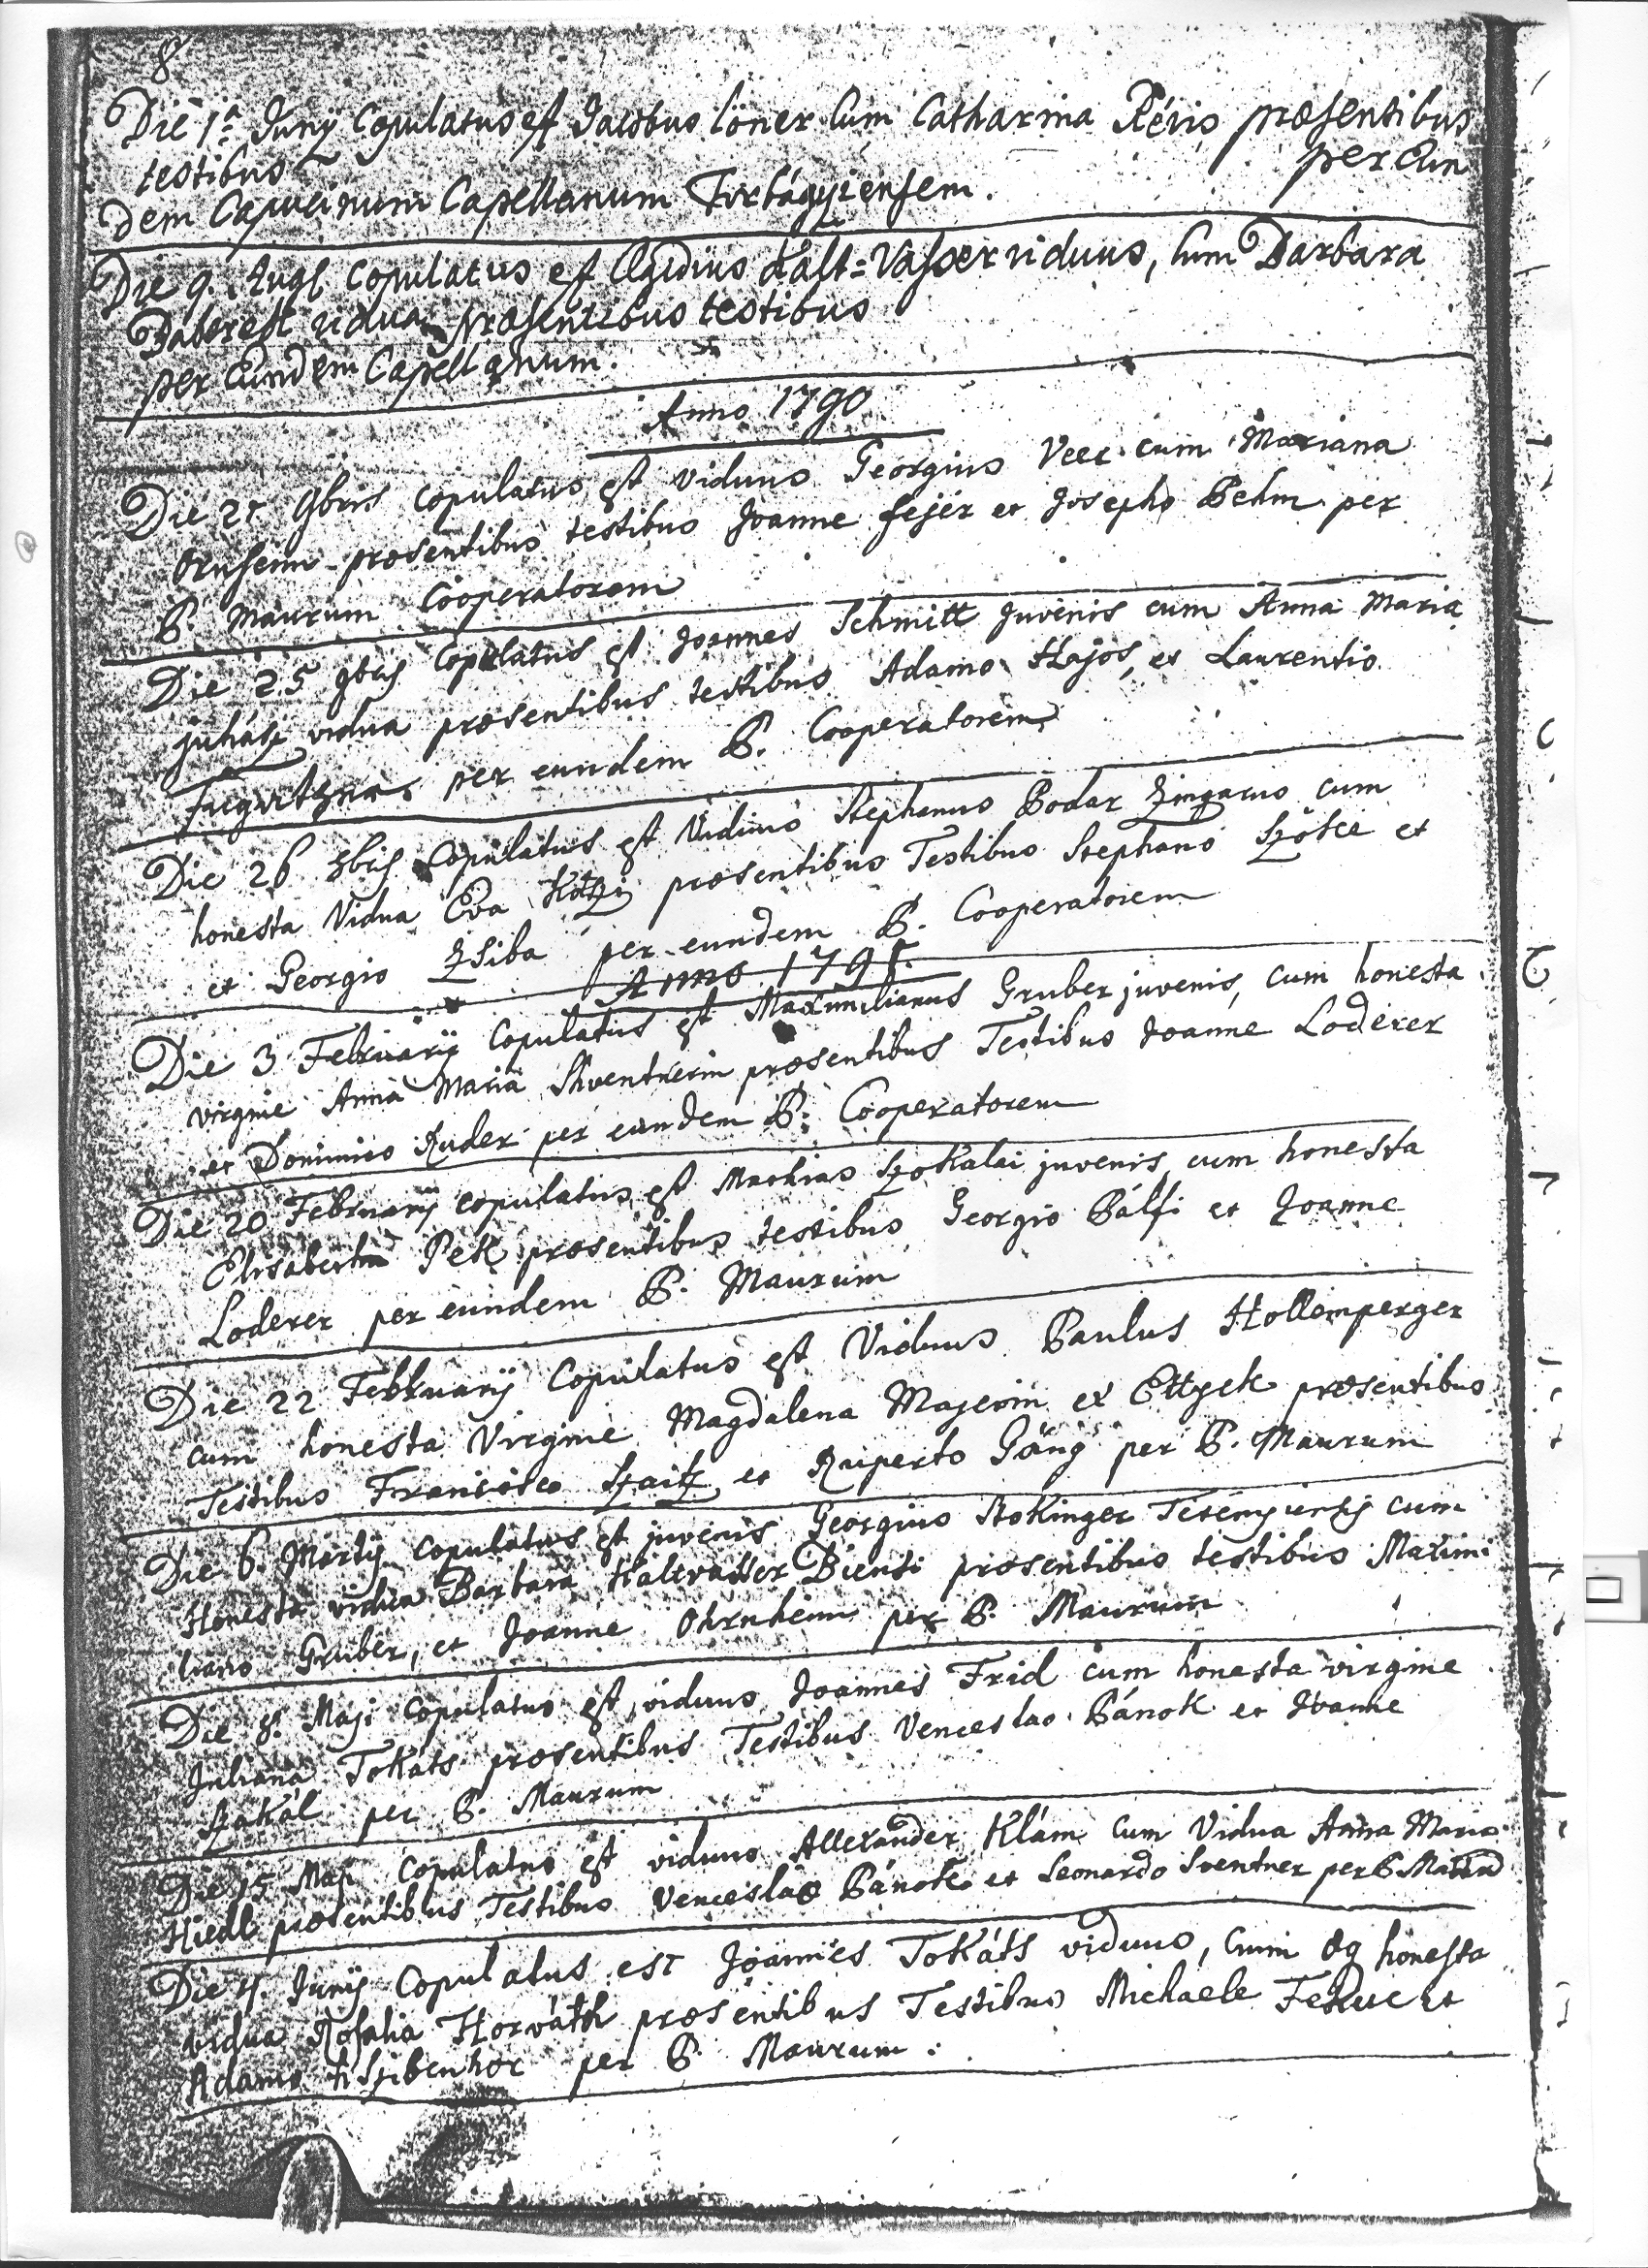 8
Die 1ª Junij Copulatus est Jacobus Löner Cum Catharina Révis præsentibus
testibus per Eun
dem Capucinum Capellanum Torbágyiensem.
Die 9. Augl Copulatus est Ægidius Kalt=Vasser viduus, Cum Barbara
vidua præsentibus testibus
per Eundem Capellanum.
Anno 1790
Die 21 9bris copulatus est viduus Georgius Veer cum Mariana
præsentibus testibus Joanne Fejér et Josepho Behm per
P. Maurum Cooperatorem
Die 25 9bris Copulatus est Joannes Schmitt Juvenis cum Anna Maria
juhász vidua præsentibus testibus Adamo Hajos, et Laurentio
per eundem P. Cooperatorem
Die 26 Copulatus est Viduus Stephanus Bodar Zingarus cum
honesta Vidua Eva præsentibus Testibus Stephano Szöke et
et Georgio Zsiba per eundem P. Cooperatorem
Anno 1791.
Die 3 Februarij Copulatus est Maximilianus Gruber juvenis, cum honesta
virgine Anna Maria Shventnerin præsentibus Testibus Joanne Loderer
et Dominico Ruder per eundem P: Cooperatorem
Die 20 Februarij copulatus est Mathias Szokalai juvenis cum honesta
Elisabetha Pek præsentibus testibus Georgio Pálfi et Joanne
Loderer per eundem P. Maurum
Die 22 Februarij Copulatus est Viduus Paulus Hollemperger
cum honesta Virgine Magdalena Majerin ex Ettyek præsentibus
Testibus Francisco Szaitz et Ruperto Gäng per P. Maurum
Die 6. Martij copulatus est juvenis Georgius Stokinger cum
Honesta vidua Barbara Kaltvasser Biensi præsentibus testibus Maximi
liano Gruber, et Joanne Ohrnheim per P. Maurum
Die 8. Maji copulatus est viduus Joannes Frid cum honesta virgine
Juliana Tokáts præsentibus Testibus Venceslao Pánok et Joanne
Szakál per P. Maurum
Die 15 Maji Copulatus est viduus Allexander Klám Cum Vidua Anna Maria
Hiedl præsentibus Testibus Venceslao Pánok et Leonardo Sventner per P Maurum
Die 4. Junij Copulatus est Joannes Tokáts viduus, Cum æq honesta
vidua Rosalia Horváth præsentibus Testibus Michaele Fekete et
Adamo per P. Maurum.